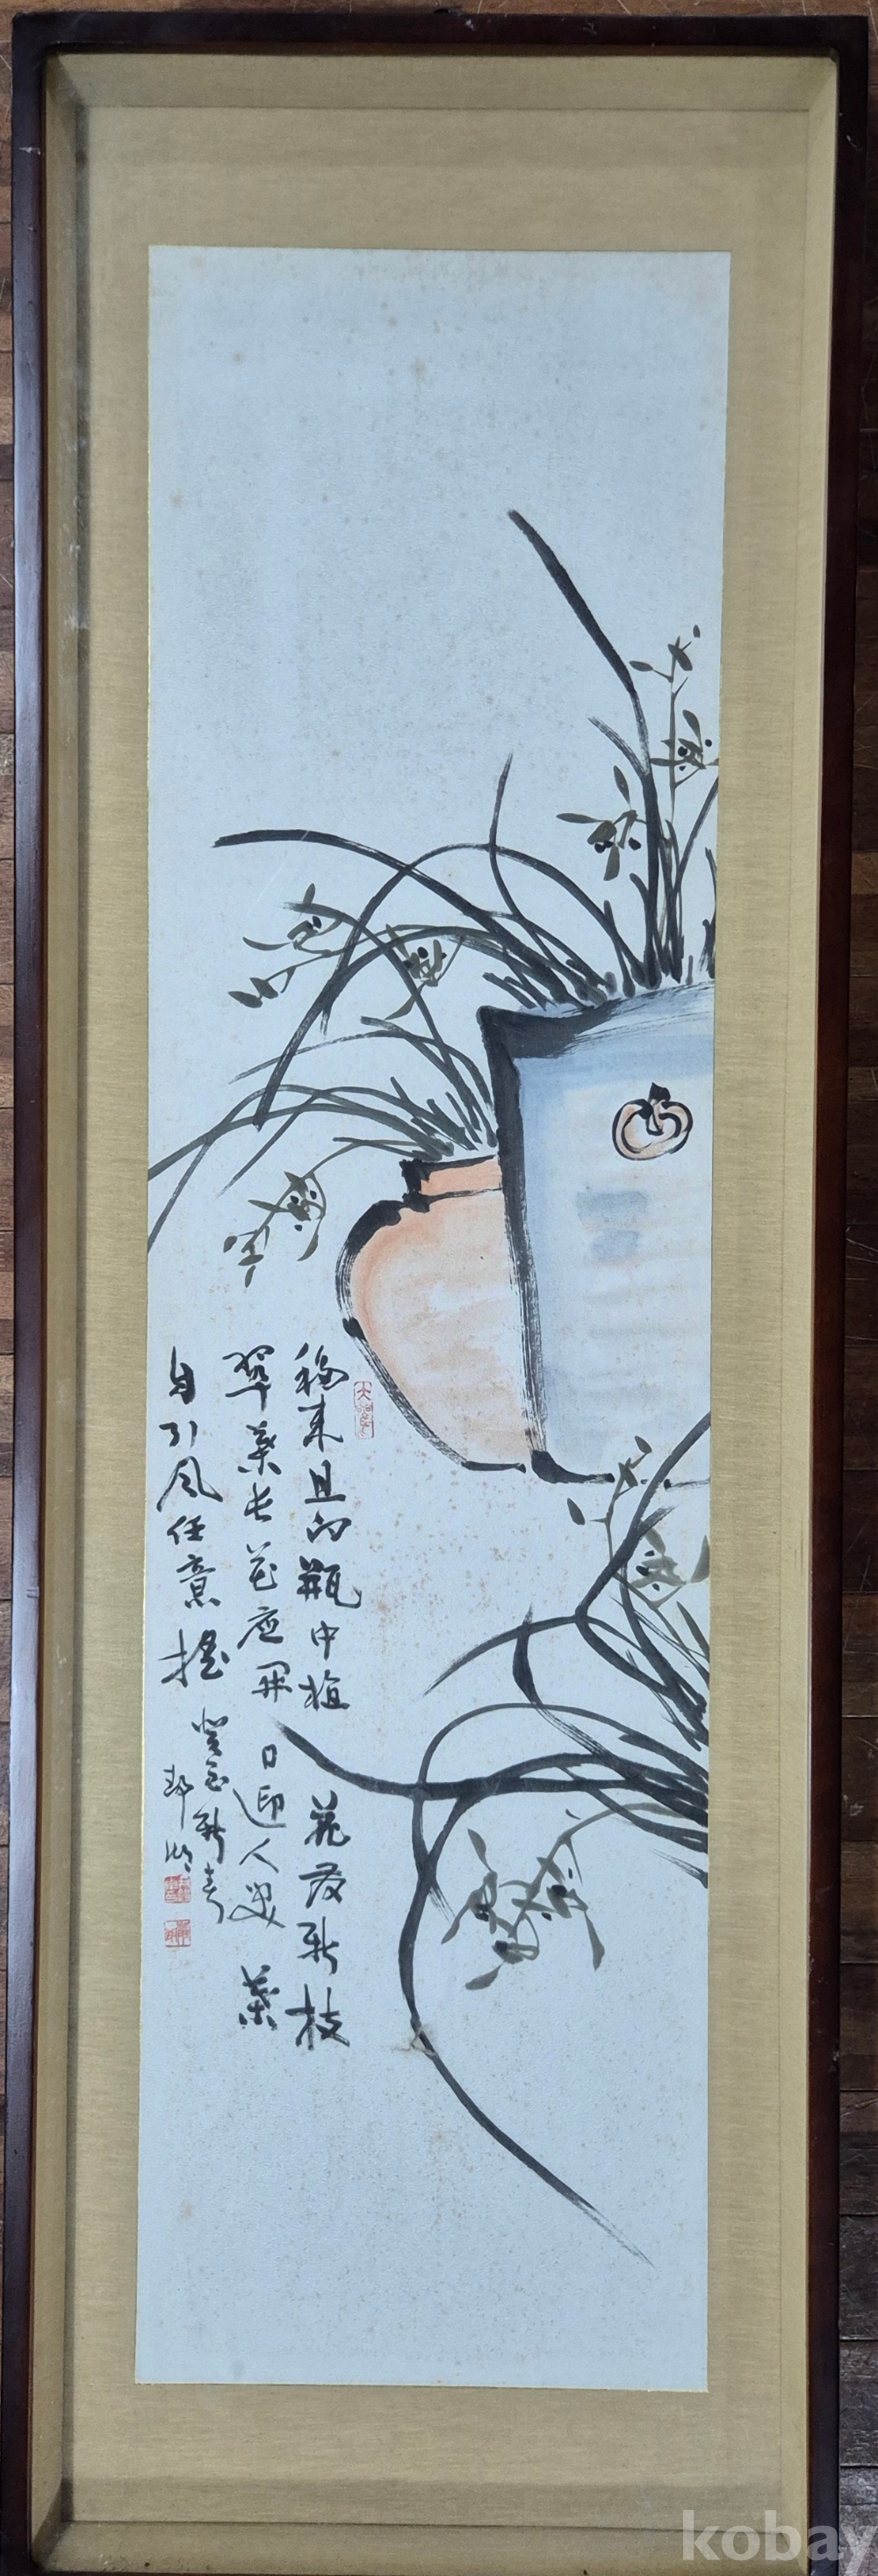 移來且向瓶中植 花發新枝
翠葉長花應開 日迎人笑 葉
自引風任意搖 癸亥新春
邨
kobay